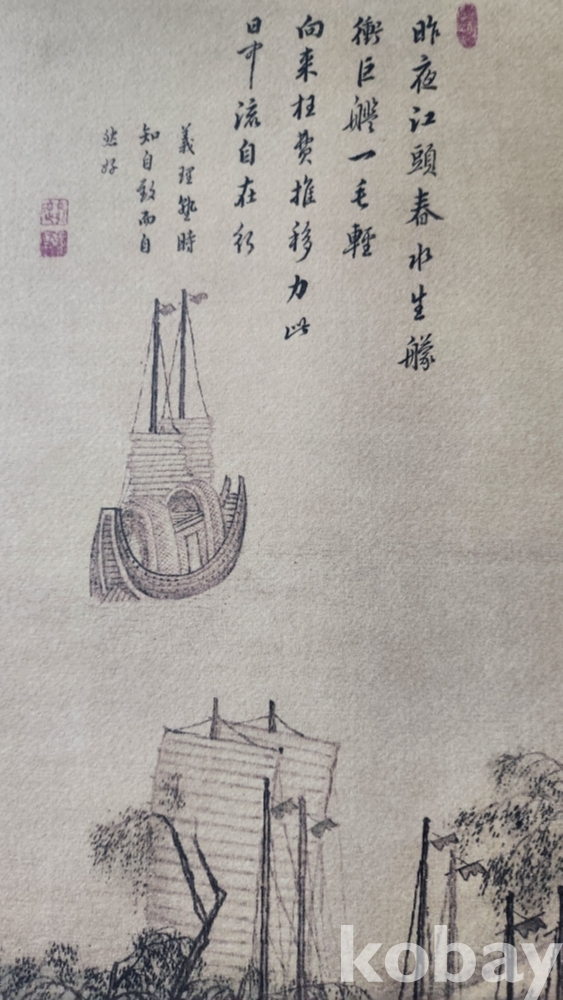 昨夜江頭春水生艨
衝巨艦一毛輕
向來枉費推移力此
日中流自在行
義理熟時
知自而自
然好
kobay